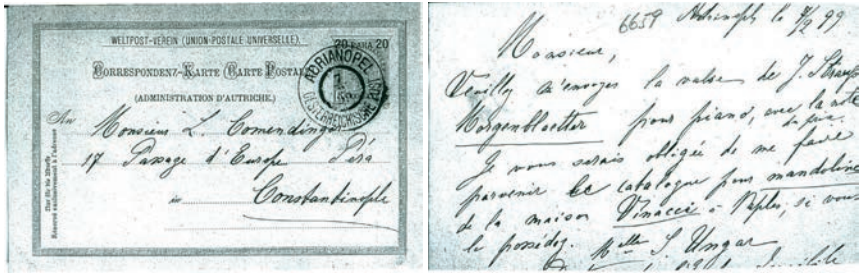 WELTPOST-VEREIN (UNION POSTALE UNIVERSELLE).
20 PARA 20
CORRESPONDENZ-KARTE (CARTE POSTALE
(ADMINISTRATION D'AUTRICHE.)
ADRIANOPEL
OESTERREICHISCHE POST
An
Monsieur L. Comendinger
17 Passage d'Europe Péra
in
Constantinople
Nur für die Adresse
Réservé exclusivement à l'adresse
6659 Adrinople le 7/2 99
Monsieur,
Veuillz m'envoyer la valse de J. Strauss
Morgenblaetter pour piano, avec la note
du prix.
Je vous serais obligée de me faire
parvenir le catalogue pour mandoline
de la maison Vinaccia à Naples, si vous
le possédez. Mlle S Ungar